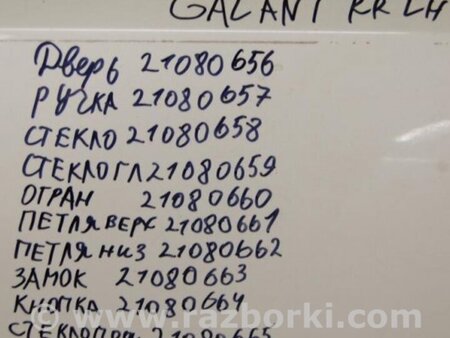 GALANT RR LH
Дверь 21080656
РУЧКА 21080657
СТЕКЛО 21080658
СТЕКЛО ГЛ 21080659
ОГРАН 21080660
ПЕТЛЯ ВЕРХ 21080661
ПЕТЛЯ НИЗ 21080662
ЗАМОК 21080663
КНОПКА 21080664
21080665
© www.razborki.com